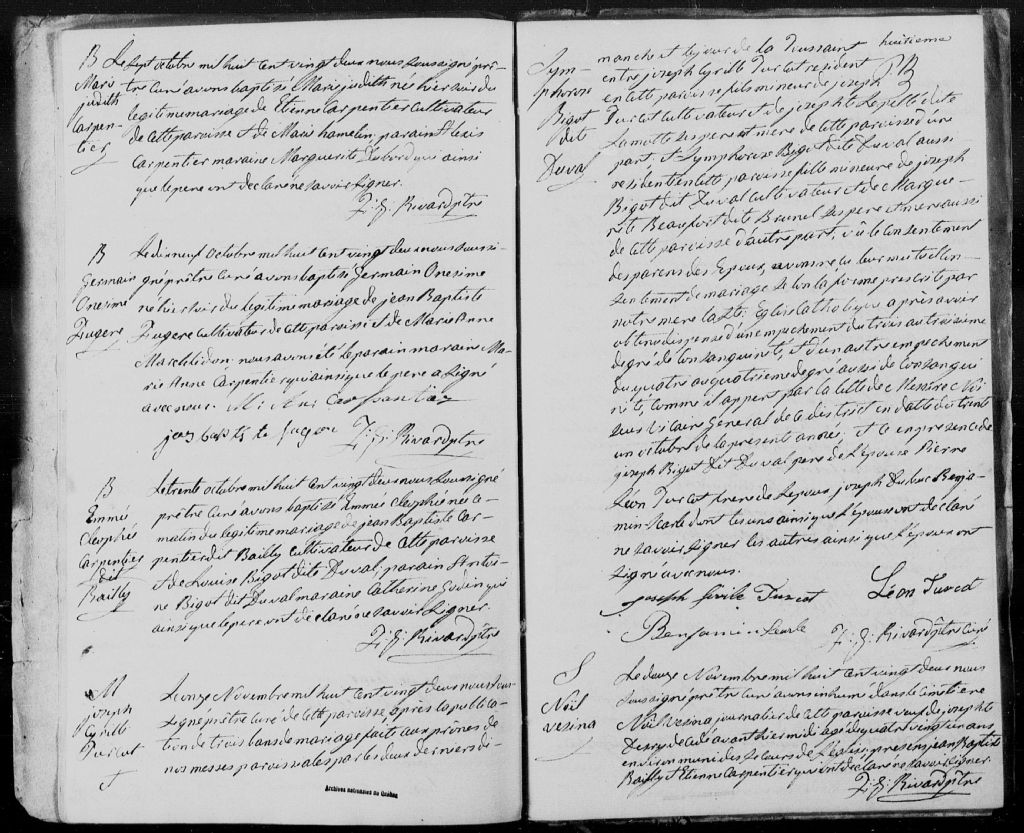 B
Marie
judith
Carpen-
tier
Le sept octobre mil huit cent vingt deux nous soussigné prê-
tre curé avons baptisé Marie judith née hier soir du
legitime mariage de Etienne Carpentier cultivateur
de cette paroisse et de Marie hamelin parain Alexis
Carpentier maraine Marguerite Dubord qui ainsi
que le pere ont declaré ne savoir signer.
F: X: Rivard ptre
B
Germain
Onesime
Fugere
Le dix neuf Octobre mil huit cent vingt deux nous soussi-
gné prêtre curé avons baptisé Germain Onesime
né hier soir du legitime mariage de jean Baptiste
Fugere cultivateur de cette paroisse et de Marie Anne
Marchildon: nous avons été le parain maraine Ma-
rie Anne Carpentier qui ainsi que le pere a signé
avec nous.
jean baptiste fugere F: X: Rivard ptre
B
Emmé
Cleophée
Carpentier
dit
Bailly
Le trente octobre mil huit cent vingt deux nous soussigné
prêtre curé avons baptisé Emmée cleophée née ce
matin du legitime mariage de jean Baptiste Car-
pentier dit Bailly cultivateur de cette paroisse
et de Louise Bigot dite Duval; parain Antoi-
ne Bigot dit Duval maraine Catherine Godin qui
ainsi que le pere ont declaré ne savoir signer.
F: X: Rivard ptre
M
joseph
Cyrille
Turcot
&
Le onze Novembre mil huit cent vingt deux nous sous-
signé prêtre curé de cette paroisse après la publica-
tion de trois bans de mariage faits aux prônes de
nos messes paroissiales par les deux derniers di-
Archives nationales du Québec
huitieme
Sym-
phorose
Bigot
dite
Duval
manche et le jour de la Toussaint
entre joseph Cyrille Turcot resident
en cette paroisse fils mineur de joseph
Turcot cultivateur et de josephte Lepellé dite
Lamotte ses pere et mere de cette paroisse d'une
part, et Symphorose Bigot dite Duval aussi
residente en cette paroisse fille mineure de joseph
Bigot dit Duval cultivateur et de Margue-
rite Beaufort dite Brunel ses pere et mere aussi
de cette paroisse d'autre part, vu le consentement
des parens des Epoux, avons reçu leur mutuel con-
sentement de mariage selon la forme prescrite par
notre mere la Ste Eglise Catholique après avoir
obtenu dispense d'un empechement du trois au troisieme
degré de consanguinité, et d'un autre empechement
du quatre au quatrieme degré aussi de consangui-
nité, comme il appert par la lettre de Messire Noi
seux Vicaire Général de ce district en datte du trente
un octobre de la presente année, et ce en presence de
joseph Bigot dit Duval pere de l'epouse Pierre
Léon Turcot frere de l'epoux joseph Dubuc Benja-
min dont les uns ainsi que l'epouse ont declaré
ne savoir signer les autres ainsi que l'epoux ont
signé avec nous.
Joseph Sirile Turcot Léon Turcot
Benjamin F: X: Rivard ptre curé
S
Noël
vesina
Le douze Novembre mil huit cent vingt deux nous
soussigné prêtre curé avons inhumé dans le cimetiere
Noël Vesina journalier de cette paroisse veuf de josephte
decedé avant hier midi agé de quatre vingt un ans
environ muni des secours de l'église; presens jean Baptiste
Bailly et Etienne Carpentier qui ont declaré ne savoir signer.
F: X: Rivard ptre